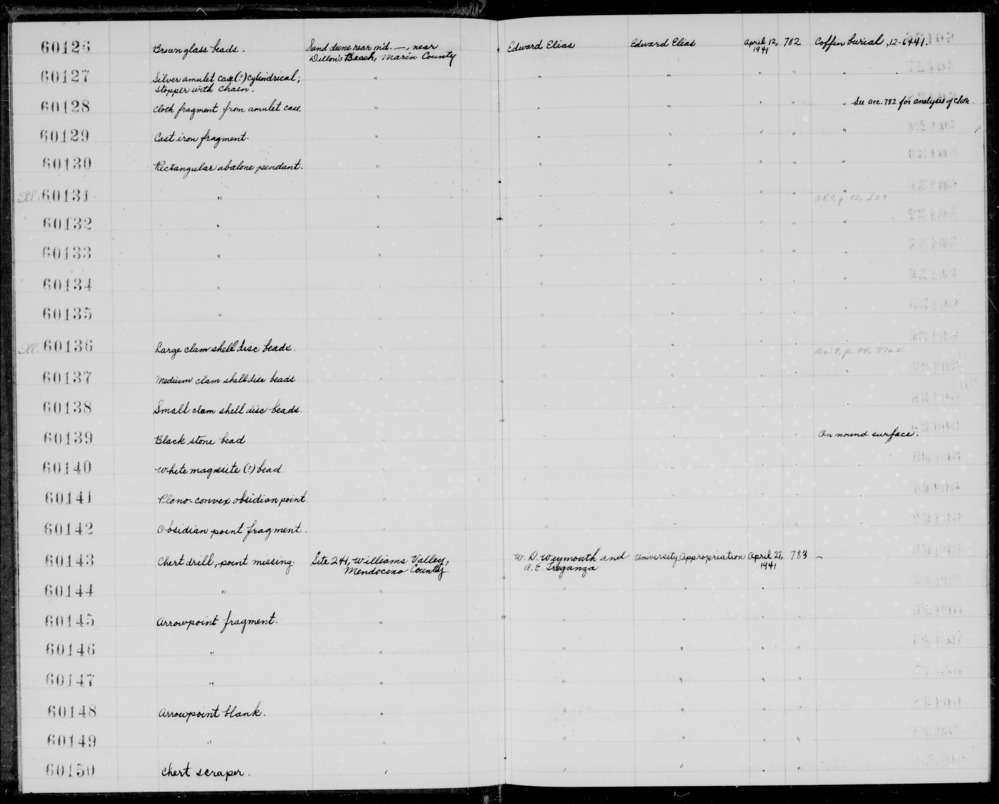 60126 Brown glass beads. Sand dune near mid. —, near Edward Elias Edward Elias April 12, 782 Coffin burial, 12-6441.
Dillon's Beach, Marin County 1941
60127 Silver amulet case(?) cylindrical; " " " " " "
stopper with chain.
60128 Cloth fragment from amulet case " " " " " " See acc. 782 for analysis of cloth.
60129 Cast iron fragment. " " " " " "
60130 Rectangular abalone pendant. " " " " " "
60131 " " " " " "
60132 " " " " " " "
60133 " " " " " " "
60134 " " " " " " "
60135 " " " " " " "
60136 Large clam shell disc beads. " " " " "
60137 Medium clam shell disc beads " " " " " "
60138 Small clam shell disc beads. " " " " " "
60139 Black stone bead " " " " " On mound surface.
60140 White magnesite (?) bead " " " " " "
60141 Plano-convex obsidian point " " " " " "
60142 Obsidian point fragment. " " " " " "
60143 Chert drill, point missing. Site 241, Williams Valley, W. D. Weymouth and University Appropriation April 27, 783 —
Mendocino County A. E. Treganza 1941
60144 " " " " " "
60145 Arrowpoint fragment. " " " " "
60146 " " " " " "
60147 " " " " " "
60148 Arrowpoint blank. " " " " "
60149 " " " " " "
60150 Chert scraper. " " " " "